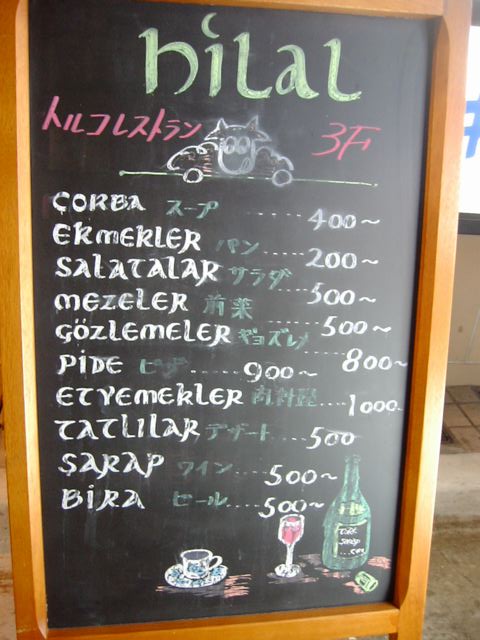 hilal
トルコレストラン 3F
ÇORBA スープ ..... 400~
EKMEKLER パン ..... 200~
SALATALAR サラダ ..... 500~
MEZELER 前菜 ..... 500~
GÖZLEMELER ギョズレメ ..... 800~
PİDE ピザ ..... 900~
ETYEMEKLER 肉料理 .... 1000~
TATLILAR デザート .... 500
ŞARAP ワイン .... 500~
BİRA ビール .... 500~
ŞARAP